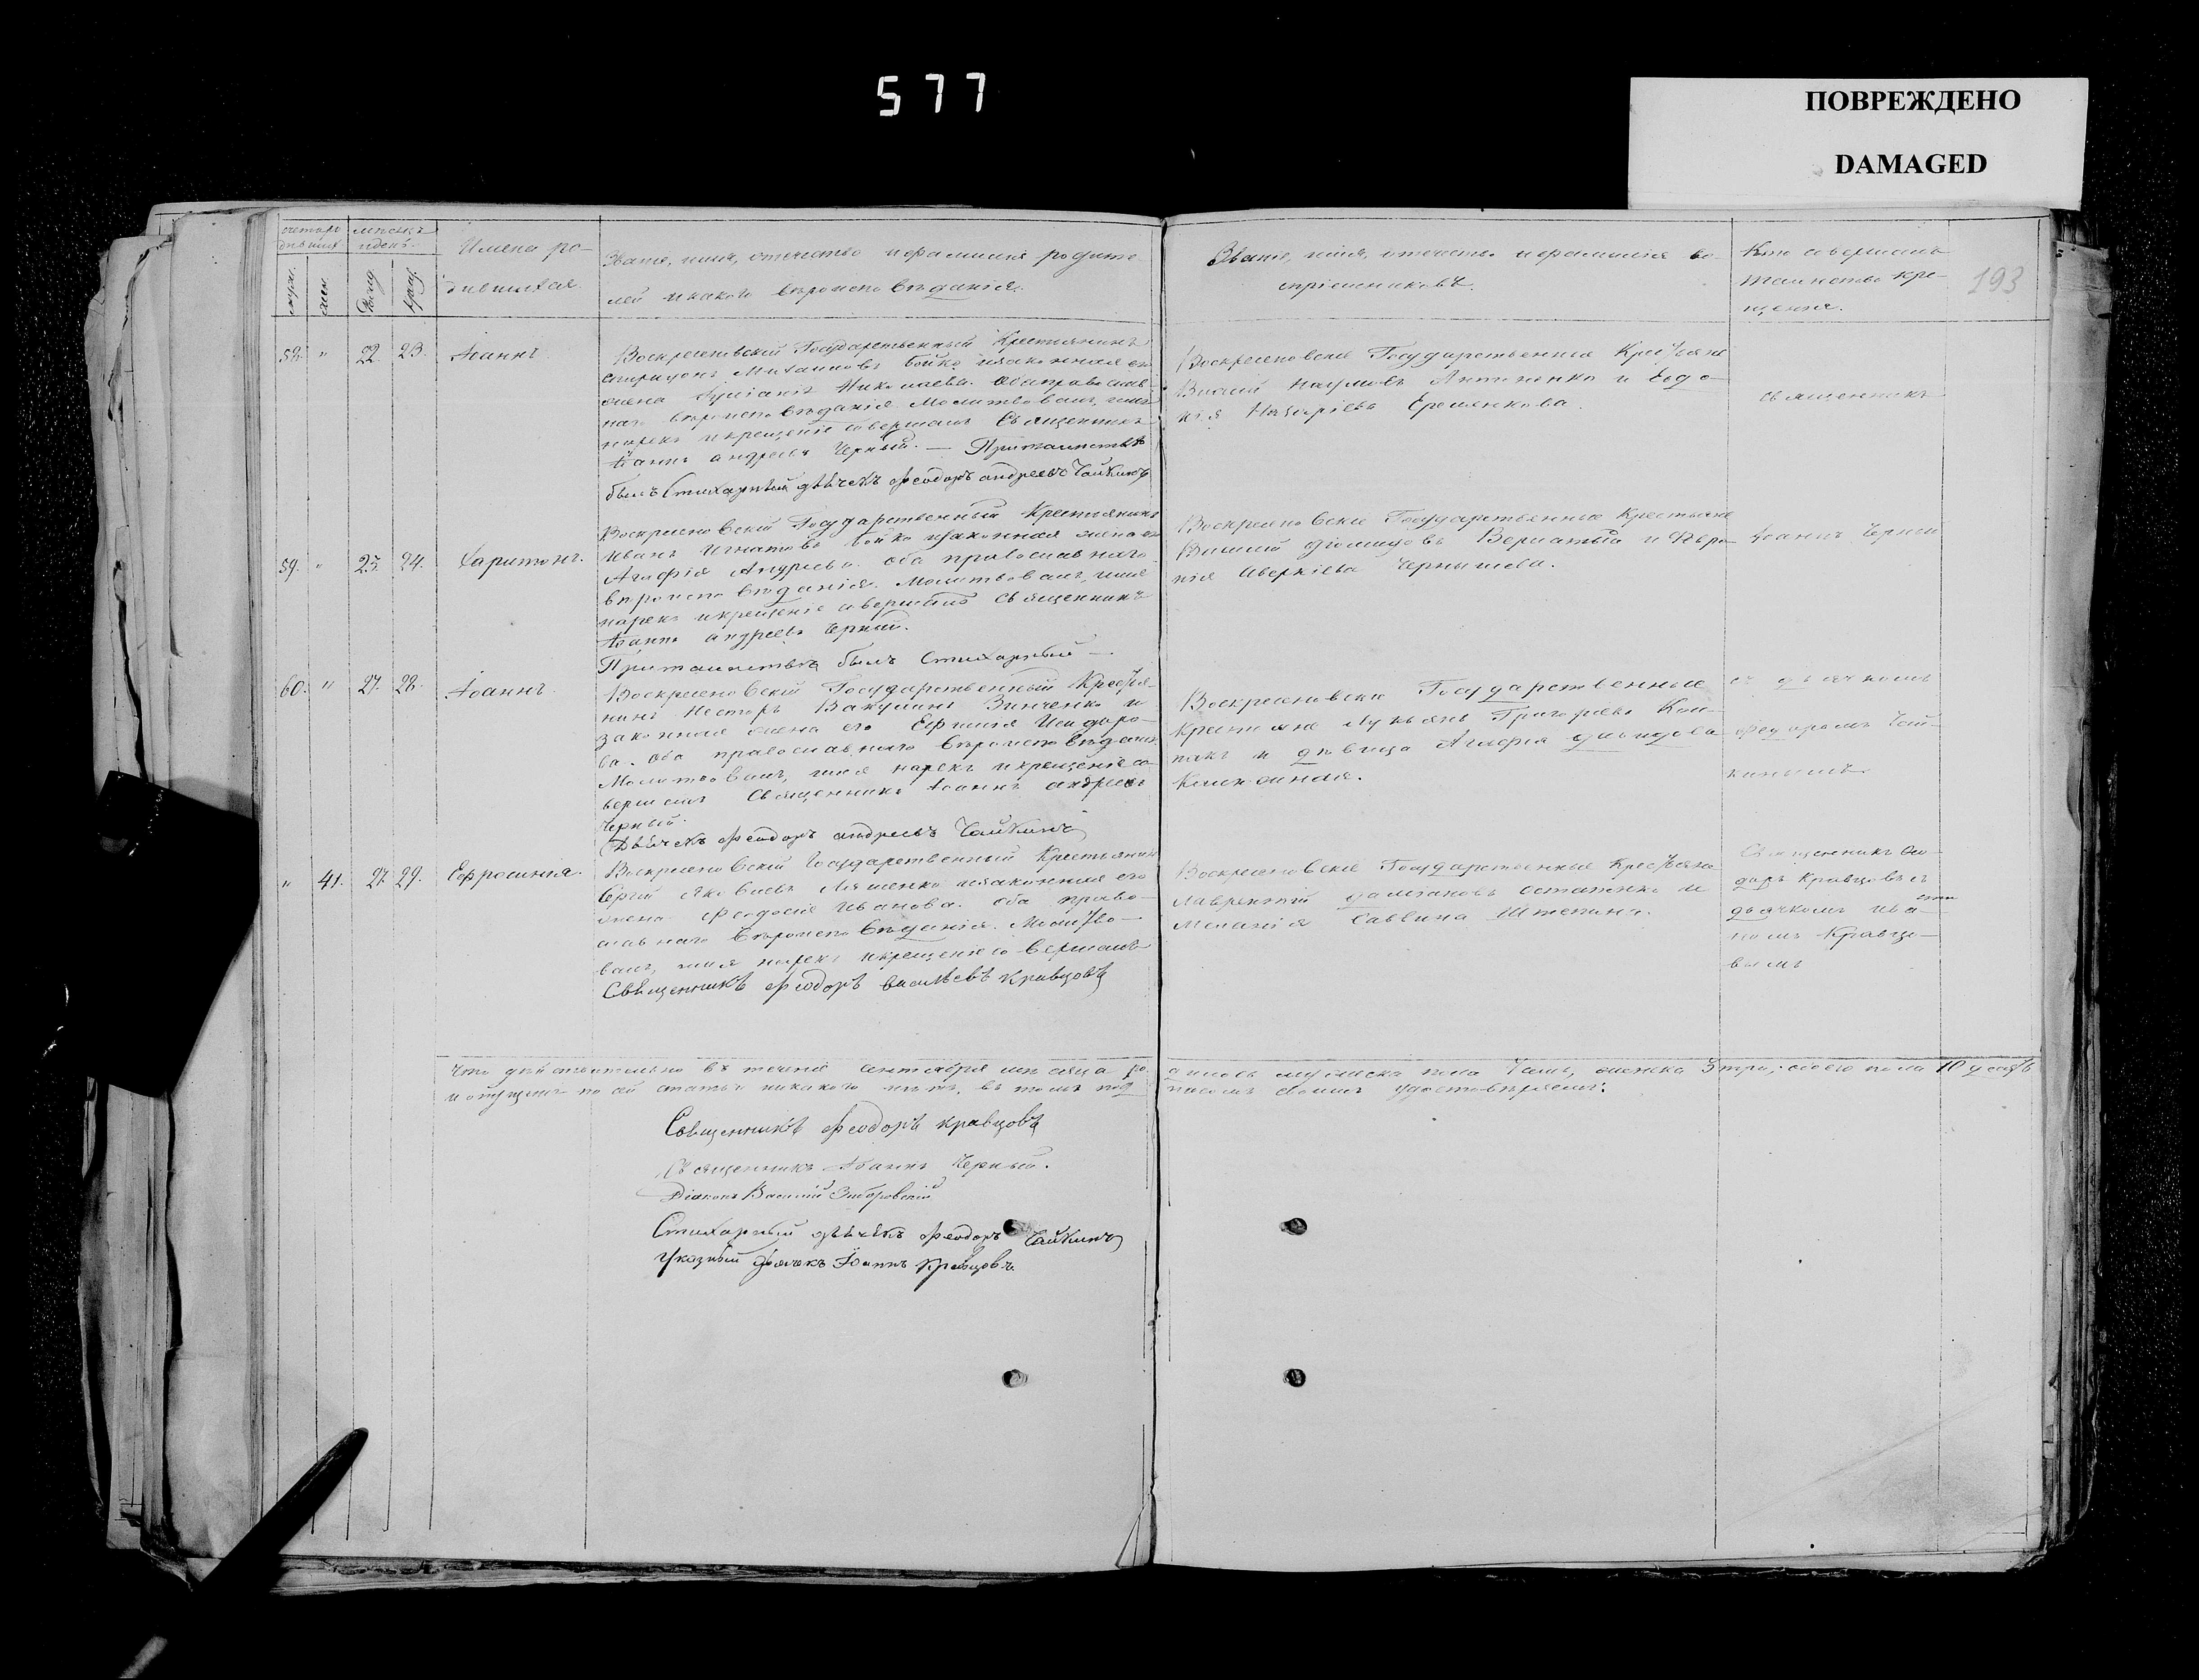 577
ПОВРЕЖДЕНО
DAMAGED
193
мѣсяцъ
и день.
муж.
жен.
Рожд.
Крещ.
Имена ро-
дившихся.
Званіе, имя, отчество и фамилія родите
лей и какого вѣроисповѣданія.
Званіе, имя, отчество и фамилія во-
спріемниковъ.
Кто совершалъ
таинство кре-
щенія.
58. " 22. 23. Іоаннъ.
Воскресеновскій Государственный Крестьянинъ
Спиридонъ Михаиловъ Бойко и законная его
жена Николаева. Оба православ-
наго вѣроисповѣданія. Молитвовалъ, имя
нарекъ и крещеніе совершалъ Священникъ
Іоаннъ Андреевъ Черный. — При таинствѣ
былъ Стихарный дьячекъ Феодоръ Андреевъ Чайкинъ
Воскресеновскіе Государственные Крестьяне
Василій Наумовъ Антипенко и Евдо-
кія Назаріева Еременкова.
священникъ
59. " 23. 24. Харитонъ.
Воскресеновскій Государственный Крестьянинъ
Иванъ Игнатовъ Бойко и законная жена его
Агафія Андреева. оба православнаго
вѣроисповѣданія. Молитвовалъ, имя
нарекъ и крещеніе совершалъ Священникъ
Іоаннъ Андреевъ Черный.
При таинствѣ былъ Стихарный —
Воскресеновскіе Государственные Крестьяне
Василій и Февро-
нія Аверкіева Чернышева.
Іоаннъ Черный
60. " 27. 28. Іоаннъ.
Воскресеновскій Государственный Крестья-
нинъ Несторъ Вакулинъ Зинченко и
законная жена его Ефимія Исидоро-
ва. оба православнаго вѣроисповѣданія
Молитвовалъ, имя нарекъ и крещеніе со-
вершалъ Священникъ Іоаннъ Андреевъ
Черный.
Дьячекъ Феодоръ Андреевъ Чайкинъ
Воскресеновскіе Государственные
Крестьяне Лукьянъ Григорьевъ
и дѣвица Агафія Давидова
съ дьячкомъ
Федоромъ Чай-
кинымъ
" 41. 27. 29. Ефросинія.
Воскресеновскій Государственный Крестьянинъ
Сергій Яковлевъ Ляшенко и законная его
жена Феодосія Иванова. оба право-
славнаго вѣроисповѣданія. Молитво-
валъ, имя нарекъ и крещеніе совершалъ
Священникъ Феодоръ Васильевъ Кравцовъ
Воскресеновскіе Государственные Крестьяне
Лаврентій Даміановъ Остапенко и
Меланія Саввина
Священникъ Фео-
доръ Кравцовъ съ
дьячкомъ
Кравцо-
вымъ
Что дѣйствительно въ теченіе сентября мѣсяца ро-
дилось мужеска пола 7мь, женска 3 три; обоего пола 10 десять
и опущеній по сей статьѣ никакого нѣтъ, въ томъ под
писомъ своимъ удостовѣряемъ:
Священникъ Феодоръ Кравцовъ
Священникъ Іоаннъ Черный.
Діаконъ Василій
Стихарный дьячекъ Феодоръ Чайкинъ
Указный дьячекъ Іоаннъ Кравцовъ